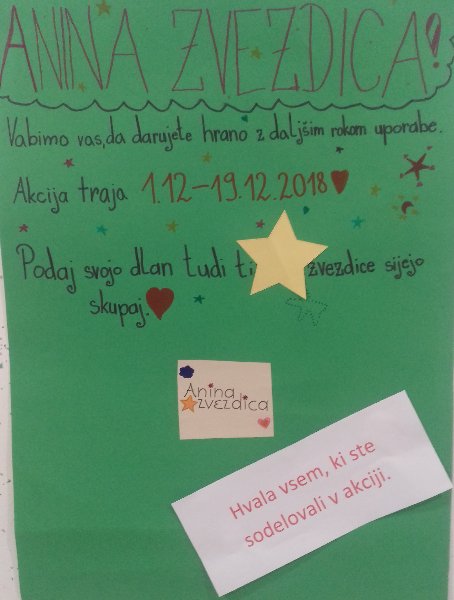 ANINA ZVEZDICA!
Vabimo vas, da darujete hrano z daljšim rokom uporabe.
Akcija traja 1.12-19.12.2018
Podaj svojo dlan tudi ti zvezdice sijejo
skupaj.
Anina
zvezdica
Hvala vsem, ki ste
sodelovali v akciji.